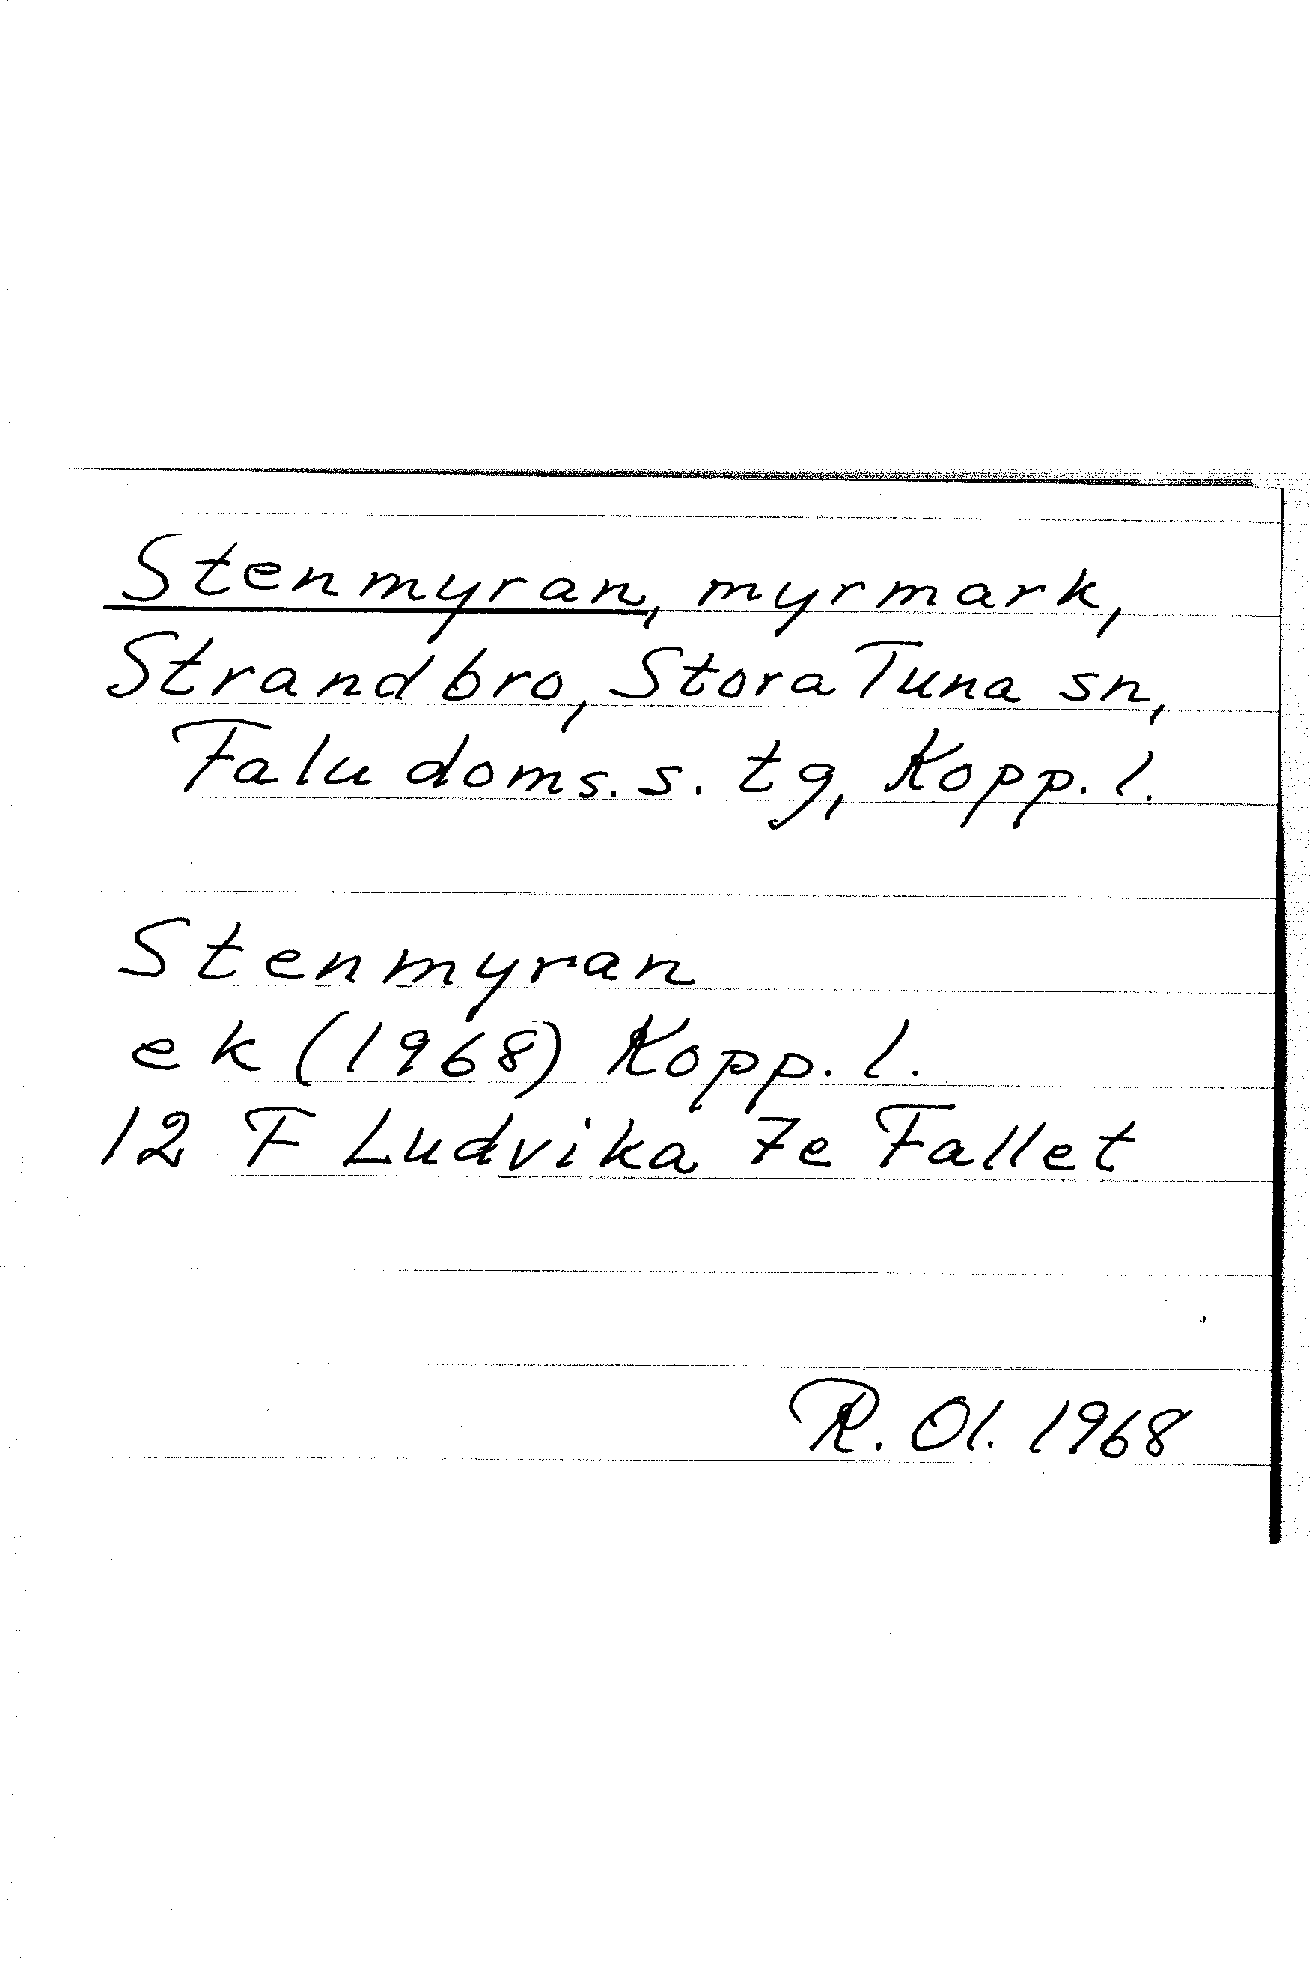 Stenmyran, myrmark,
Strandbro, Stora Tuna sn,
Falu doms. s. tg, Kopp. l.
Stenmyran
ek (1968) Kopp. l.
12 F Ludvika 7e Fallet
R. Ol. 1968